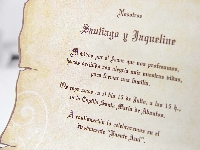 Nosotros
Santiago y Jaqueline
Motivo por el amor que nos profesamos,
hemos decidido con alegría unir nuestras vidas,
para formar una familia.
el día 15 de Julio, a las 18 hs.
en la Capilla Santa María de
A continuación lo celebraremos en el
"Puente Azul".